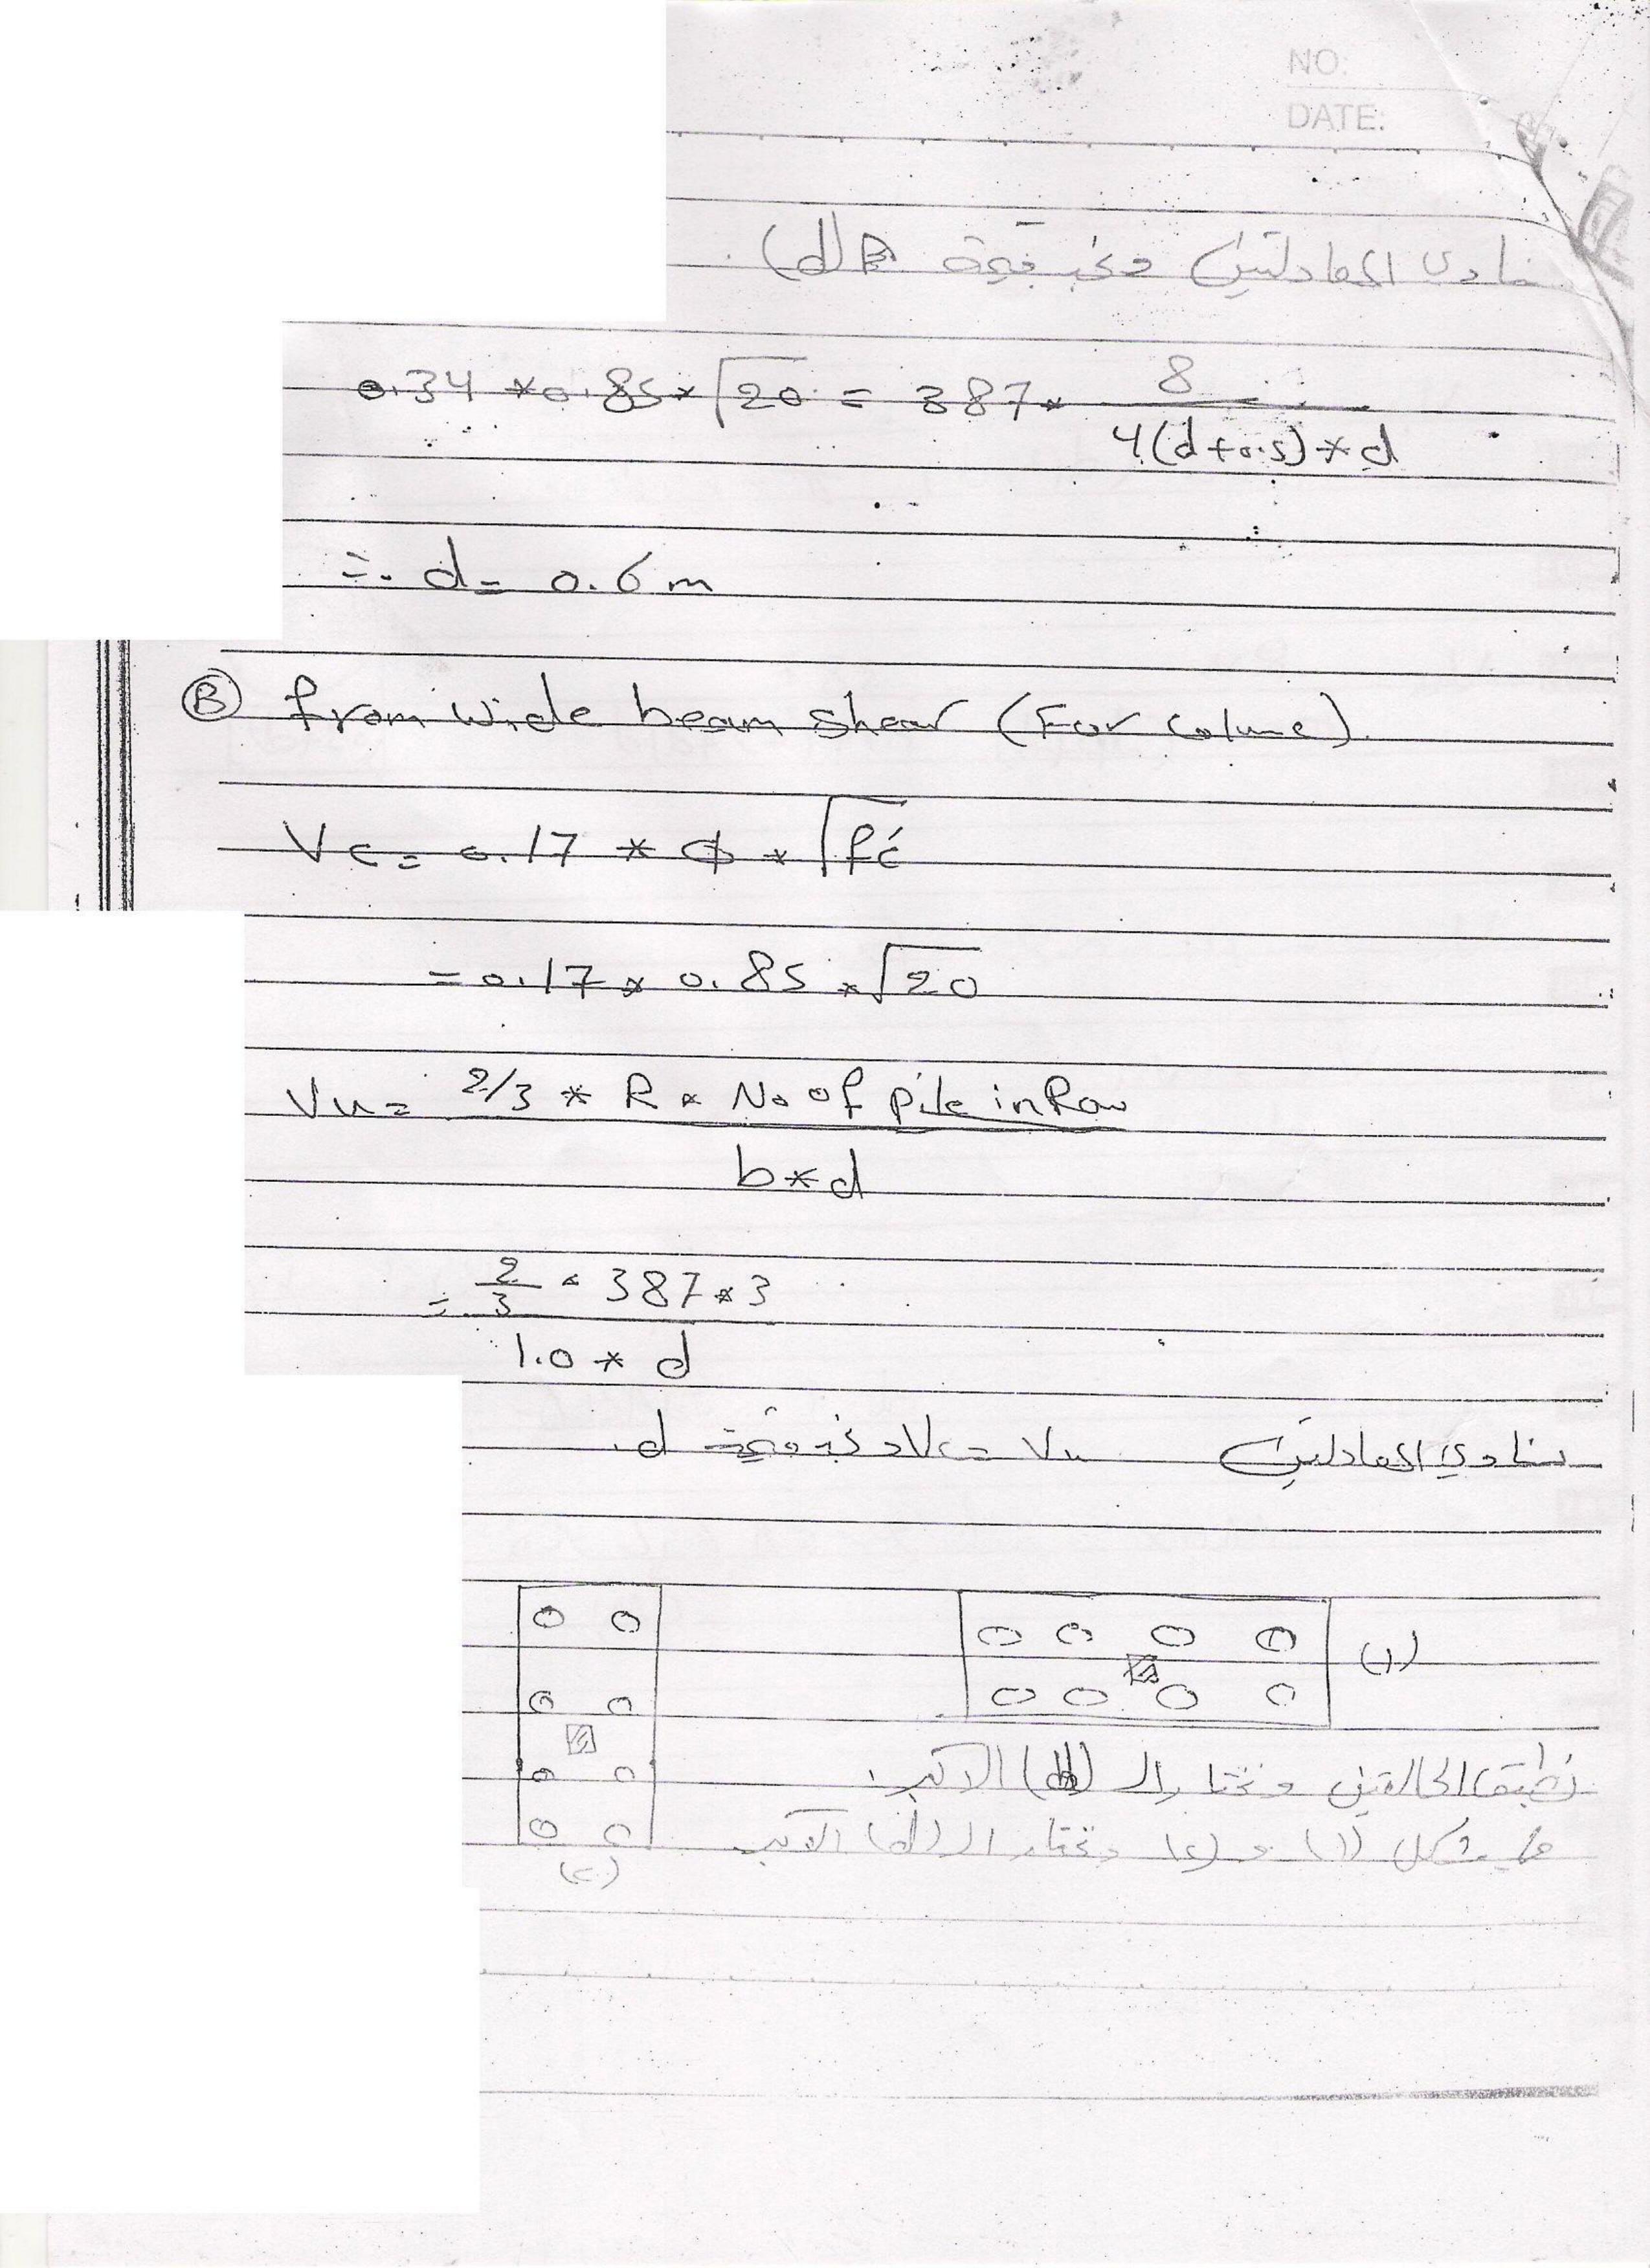 NO:
DATE:
نساوي المعادلتين ونجد قيمة (d)
0.34 * 0.85 * √20 = 387 * 8
4(d+0.5) * d
∴ d = 0.6 m
Ⓑ from wide beam shear (For Colume).
Vc = 0.17 * ϕ * √fc'
= 0.17 * 0.85 * √20
Vu = 2/3 * R * No of pile in Row
b * d
= 2/3 * 387 * 3
1.0 * d
نساوي المعادلتين Vu = Vc ونجد قيمة d.
(١)
نطبق الحالتين ونختار الـ (d) الاكبر.
شكل (١) و (٢) ونختار الـ (d) الاكبر
(٢)